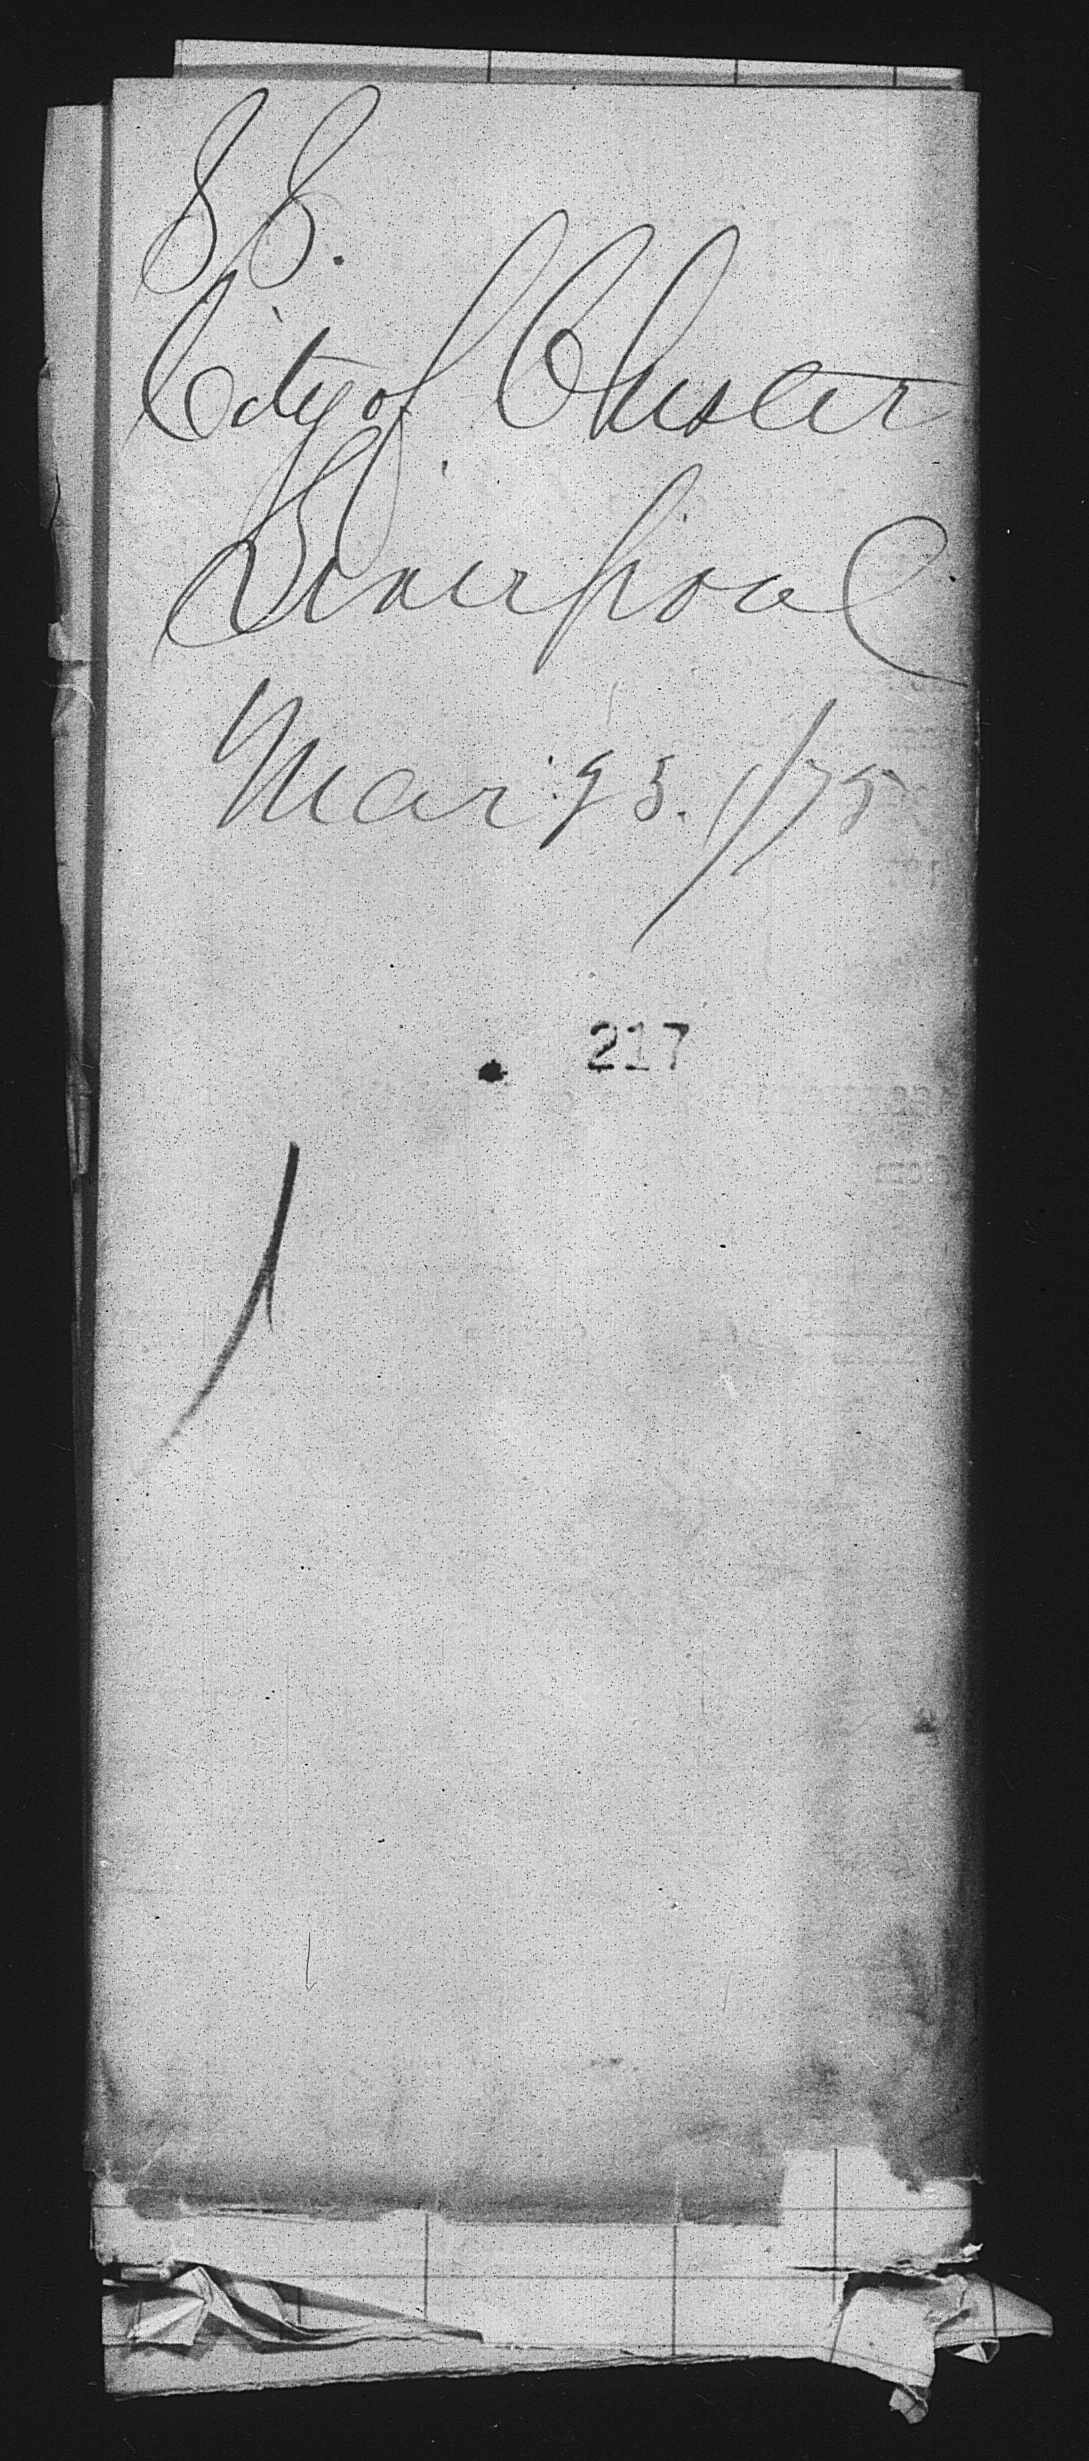 S S.
City of Chester
Liverpool
Mar 25. /75
217